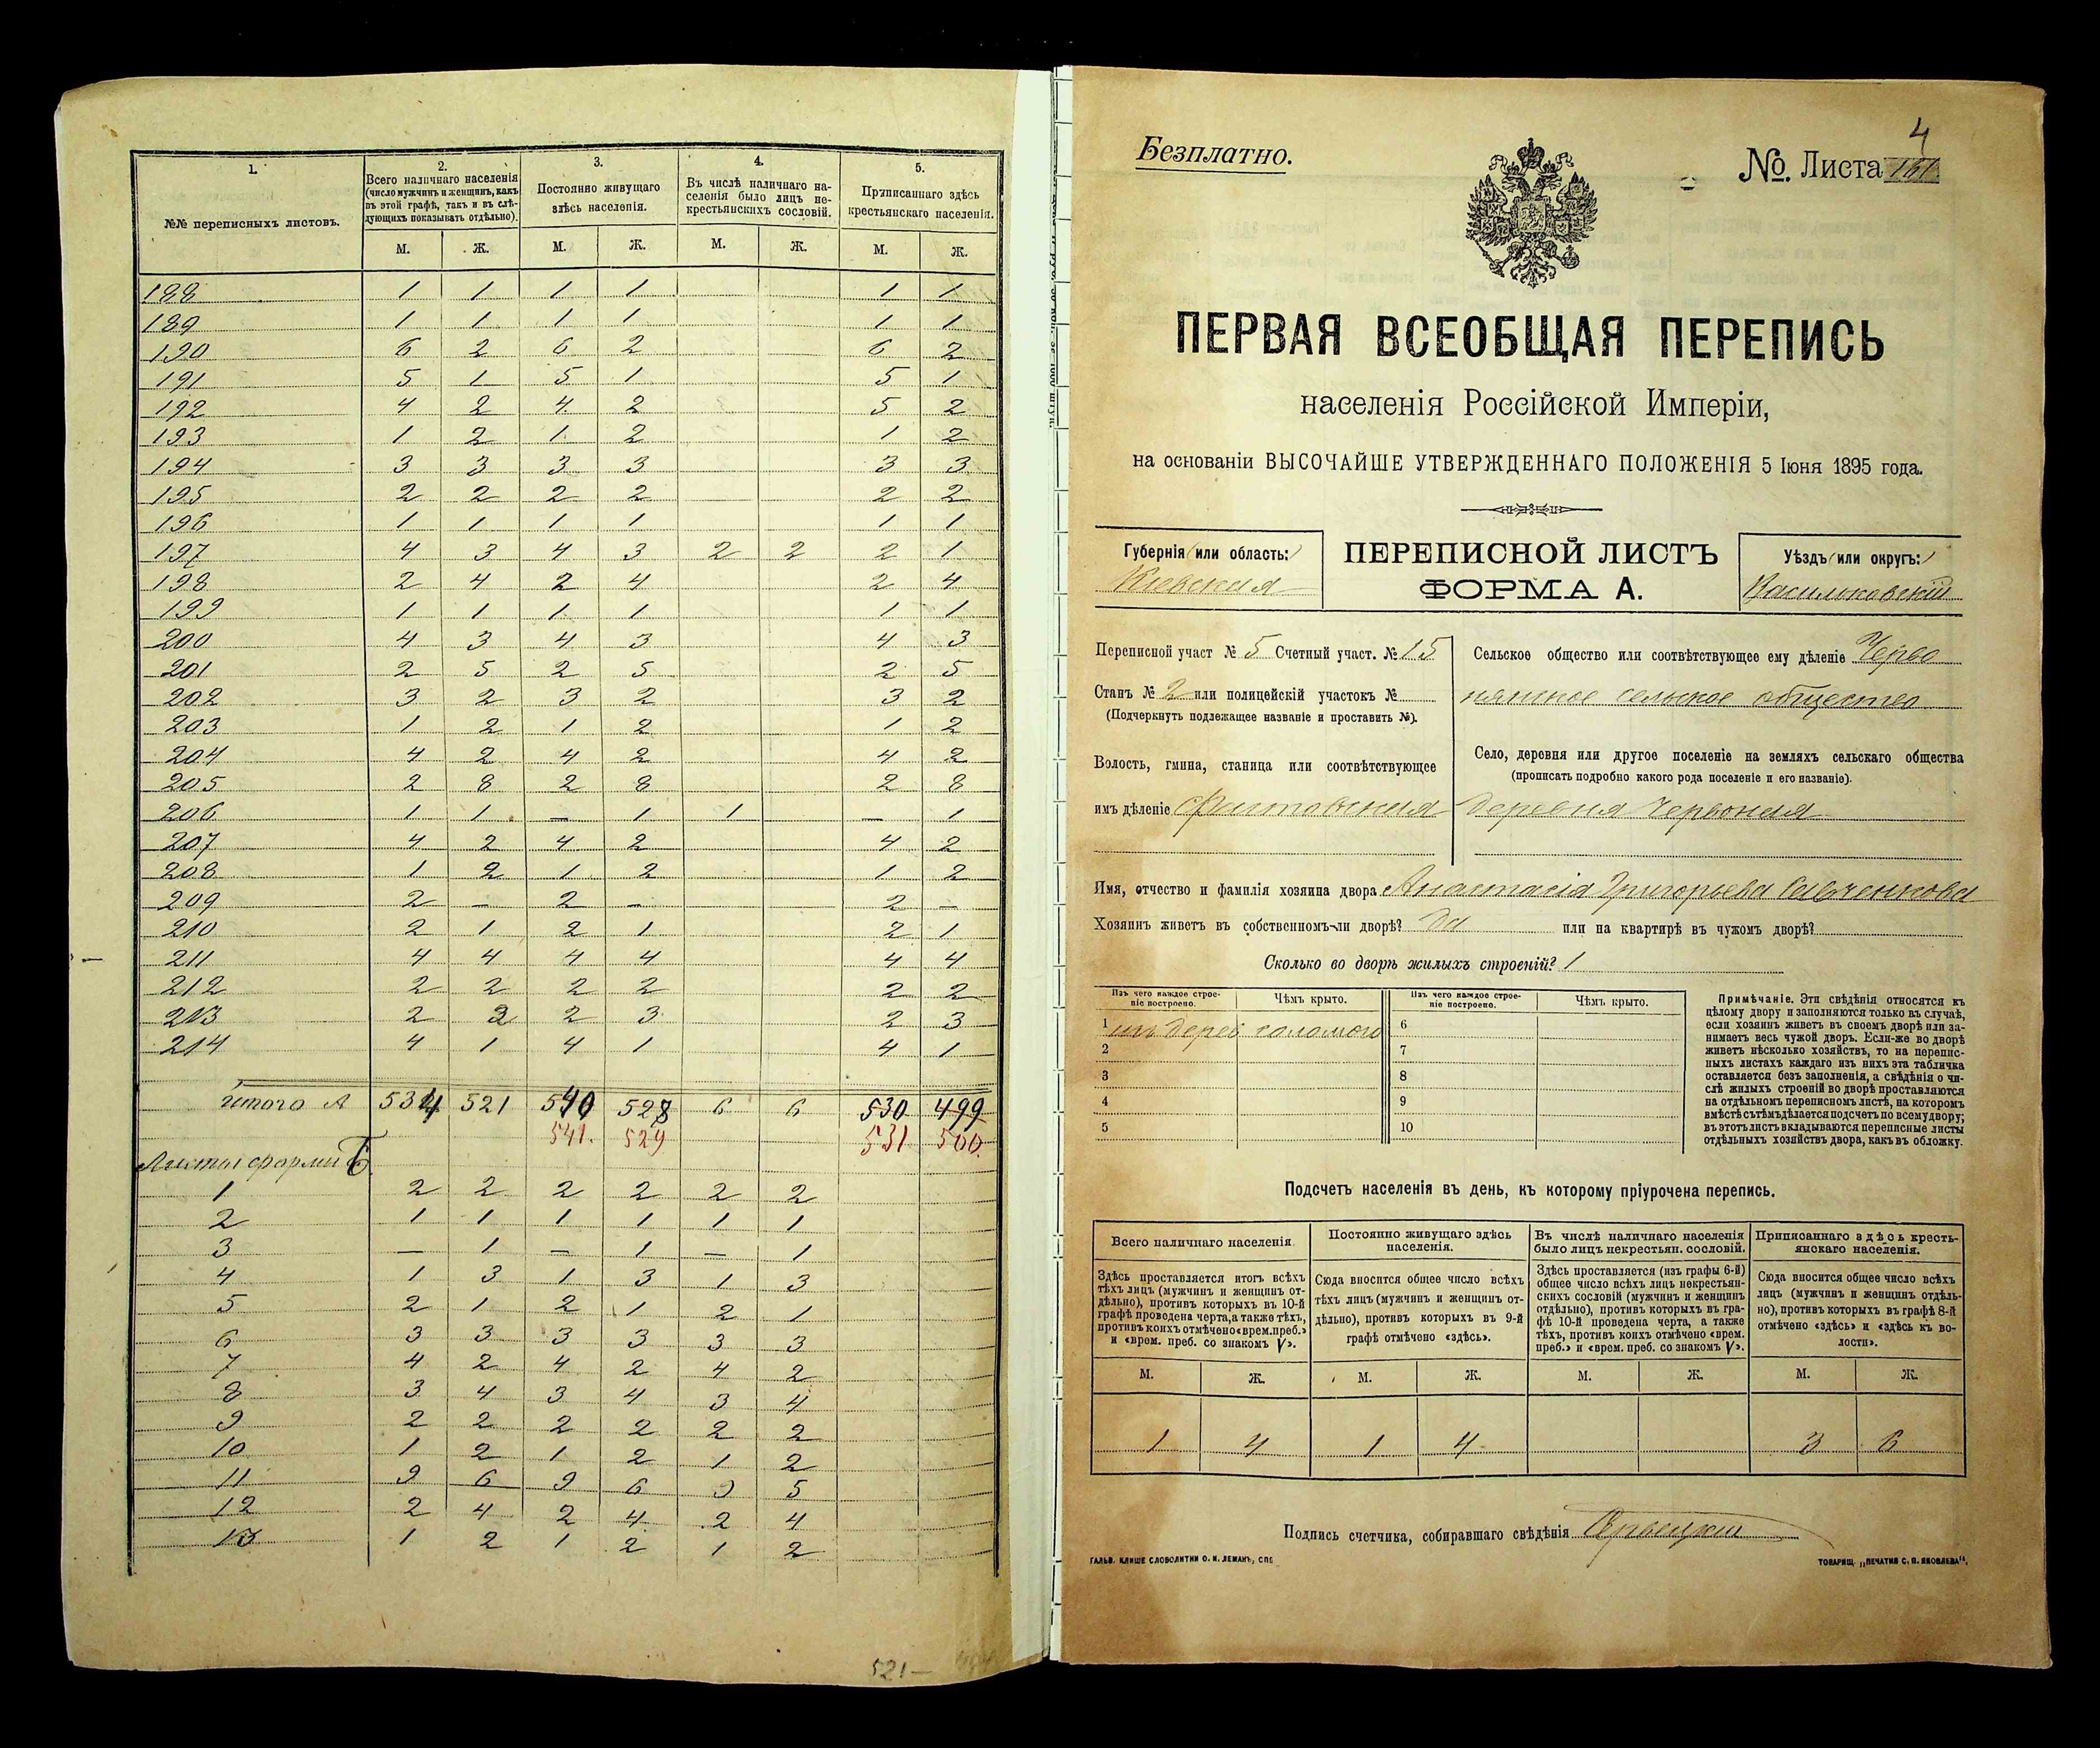 1.
2.
3.
4.
5.
№№ переписныхъ листовъ.
Всего наличнаго населенія
(число мужчинъ и женщинъ, какъ
въ этой графѣ, такъ и въ слѣ-
дующихъ показывать отдѣльно).
Постоянно живущаго
здѣсь населенія.
Въ числѣ наличнаго на-
селенія было лицъ не-
крестьянскихъ сословій.
Приписаннаго здѣсь
крестьянскаго населенія.
М. Ж. М. Ж. М. Ж. М. Ж.
188 1 1 1 1 1 1
189 1 1 1 1 1 1
190 6 2 6 2 6 2
191 5 1 5 1 5 1
192 4 2 4 2 5 2
193 1 2 1 2 1 2
194 3 3 3 3 3 3
195 2 2 2 2 2 2
196 1 1 1 1 1 1
197 4 3 4 3 2 2 2 1
198 2 4 2 4 2 4
199 1 1 1 1 1 1
200 4 3 4 3 4 3
201 2 5 2 5 2 5
202 3 2 3 2 3 2
203 1 2 1 2 1 2
204 4 2 4 2 4 2
205 2 8 2 8 2 8
206 1 1 — 1 1 — 1
207 4 2 4 2 4 2
208 1 2 1 2 1 2
209 2 — 2 — 2 —
210 2 1 2 1 2 1
211 4 4 4 4 4 4
212 2 2 2 2 2 2
213 2 3 2 3 2 3
214 4 1 4 1 4 1
Итого А 534 521 540 528 6 6 530 499
541. 529 531 500.
Листы формы Б
1 2 2 2 2 2 2
2 1 1 1 1 1 1
3 — 1 — 1 — 1
4 1 3 1 3 1 3
5 2 1 2 1 2 1
6 3 3 3 3 3 3
7 4 2 4 2 4 2
8 3 4 3 4 3 4
9 2 2 2 2 2 2
10 1 2 1 2 1 2
11 9 6 9 6 9 5
12 2 4 2 4 2 4
13 1 2 1 2 1 2
521—
4
Безплатно.
№. Листа
ПЕРВАЯ ВСЕОБЩАЯ ПЕРЕПИСЬ
населенія Россійской Имперіи,
на основаніи ВЫСОЧАЙШЕ УТВЕРЖДЕННАГО ПОЛОЖЕНІЯ 5 Іюня 1895 года.
Губернія (или область:)
Кіевская
ПЕРЕПИСНОЙ ЛИСТЪ
ФОРМА А.
Уѣздъ (или округъ:)
Васильковскій
Переписной участ № 5 Счетный участ. № 15
Станъ № 2 или полицейскій участокъ №
(Подчеркнуть подлежащее названіе и проставить №).
Волость, гмина, станица или соотвѣтствующее
имъ дѣленіе Фастовская
Сельское общество или соотвѣтствующее ему дѣленіе Черво
нянское сельское общество
Село, деревня или другое поселеніе на земляхъ сельскаго общества
(прописать подробно какого рода поселеніе и его названіе).
деревня Червоная
Имя, отчество и фамилія хозяина двора Анастасія Григорьева Савченкова
Хозяинъ живетъ въ собственномъ-ли дворѣ? да или на квартирѣ въ чужомъ дворѣ?
Сколько во дворѣ жилыхъ строеній? 1
Изъ чего каждое строе-
ніе построено.
Чѣмъ крыто.
Изъ чего каждое строе-
ніе построено.
Чѣмъ крыто.
1 изъ дерев соломою 6
2 7
3 8
4 9
5 10
Примѣчаніе. Эти свѣдѣнія относятся къ
цѣлому двору и заполняются только въ случаѣ,
если хозяинъ живетъ въ своемъ дворѣ или за-
нимаетъ весь чужой дворъ. Если-же во дворѣ
живетъ нѣсколько хозяйствъ, то на перепис-
ныхъ листахъ каждаго изъ нихъ эта табличка
оставляется безъ заполненія, а свѣдѣнія о чи-
слѣ жилыхъ строеній во дворѣ проставляются
на отдѣльномъ переписномъ листѣ, на которомъ
вмѣстѣ съ тѣмъ дѣлается подсчетъ по всему двору;
въ этотъ листъ вкладываются переписные листы
отдѣльныхъ хозяйствъ двора, какъ въ обложку.
Подсчетъ населенія въ день, къ которому пріурочена перепись.
Всего наличнаго населенія
Постоянно живущаго здѣсь
населенія.
Въ числѣ наличнаго населенія
было лицъ некрестьян. сословій.
Приписаннаго здѣсь кресть-
янскаго населенія.
Здѣсь проставляется итогъ всѣхъ
тѣхъ лицъ (мужчинъ и женщинъ от-
дѣльно), противъ которыхъ въ 10-й
графѣ проведена черта, а также тѣхъ,
противъ коихъ отмѣчено «врем. преб.»
и «врем. преб. со знакомъ V».
Сюда вносится общее число всѣхъ
тѣхъ лицъ (мужчинъ и женщинъ от-
дѣльно), противъ которыхъ въ 9-й
графѣ отмѣчено «здѣсь».
Здѣсь проставляется (изъ графы 6-й)
общее число всѣхъ лицъ некрестьян-
скихъ сословій (мужчинъ и женщинъ
отдѣльно), противъ которыхъ въ гра-
фѣ 10-й проведена черта, а также
тѣхъ, противъ коихъ отмѣчено «врем.
преб.» и «врем. преб. со знакомъ V».
Сюда вносится общее число всѣхъ
лицъ (мужчинъ и женщинъ отдѣль-
но), противъ которыхъ въ графѣ 8-й
отмѣчено «здѣсь» и «здѣсь къ во-
лости».
М. Ж. М. Ж. М. Ж. М. Ж.
1 4 1 4 3 6
Подпись счетчика, собиравшаго свѣдѣнія
ГАЛЬВ. КЛИШЕ СЛОВОЛИТНИ О. И. ЛЕМАНЪ, СПБ
ТОВАРИЩ. „ПЕЧАТНЯ С. П. ЯКОВЛЕВА“.